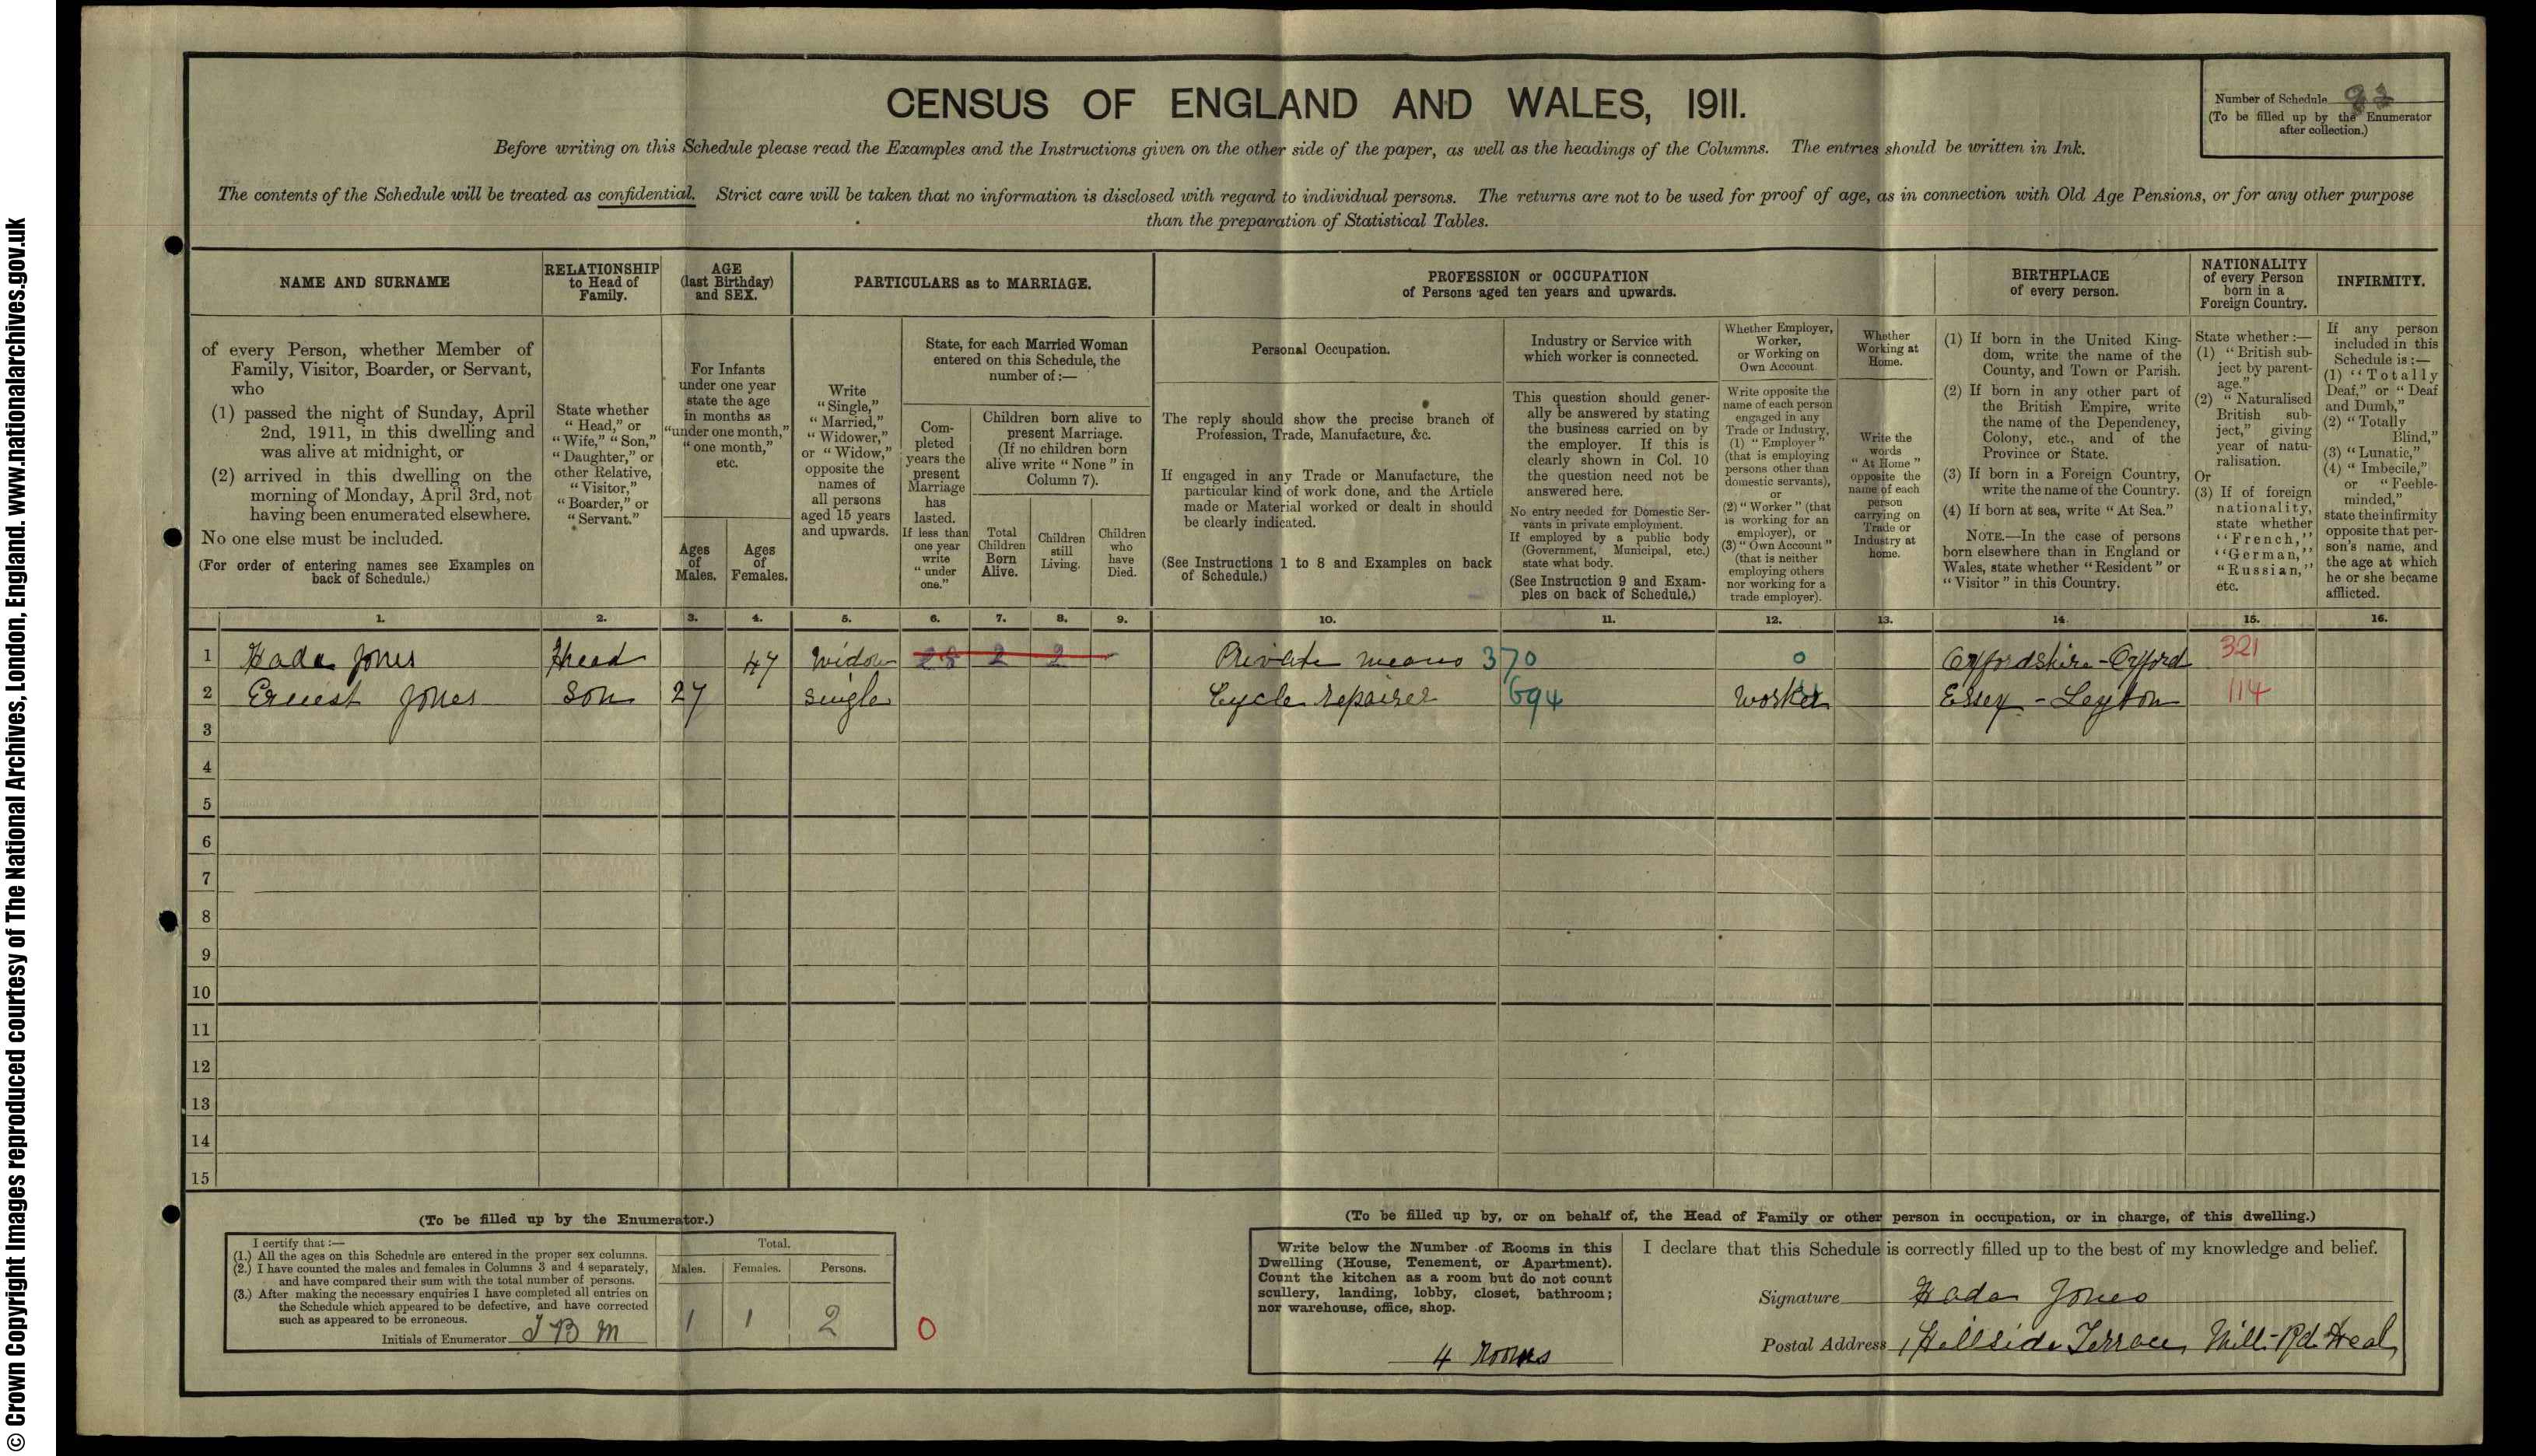 © Crown Copyright Images reproduced courtesy of The National Archives, London, England. www.nationalarchives.gov.uk
CENSUS OF ENGLAND AND WALES, 1911.
Number of Schedule
(To be filled up by the Enumerator
after collection.)
Before writing on this Schedule please read the Examples and the Instructions given on the other side of the paper, as well as the headings of the Columns. The entries should be written in Ink.
The contents of the Schedule will be treated as confidential. Strict care will be taken that no information is disclosed with regard to individual persons. The returns are not to be used for proof of age, as in connection with Old Age Pensions, or for any other purpose
than the preparation of Statistical Tables.
NAME AND SURNAME
of every Person, whether Member of
Family, Visitor, Boarder, or Servant,
who
(1) passed the night of Sunday, April
2nd, 1911, in this dwelling and
was alive at midnight, or
(2) arrived in this dwelling on the
morning of Monday, April 3rd, not
having been enumerated elsewhere.
No one else must be included.
(For order of entering names see Examples on
back of Schedule.)
RELATIONSHIP
to Head of
Family.
State whether
"Head," or
"Wife," "Son,"
"Daughter," or
other Relative,
"Visitor,"
"Boarder," or
"Servant."
AGE
(last Birthday)
and SEX.
For Infants
under one year
state the age
in months as
"under one month,"
"one month,"
etc.
Ages
of
Males.
Ages
of
Females.
PARTICULARS as to MARRIAGE.
Write
"Single,"
"Married,"
"Widower,"
or "Widow,"
opposite the
names of
all persons
aged 15 years
and upwards.
State, for each Married Woman
entered on this Schedule, the
number of:—
Com-
pleted
years the
present
Marriage
has
lasted.
If less than
one year
write
"under
one."
Children born alive to
present Marriage.
(If no children born
alive write "None" in
Column 7).
Total
Children
Born
Alive.
Children
still
Living.
Children
who
have
Died.
PROFESSION or OCCUPATION
of Persons aged ten years and upwards.
Personal Occupation.
The reply should show the precise branch of
Profession, Trade, Manufacture, &c.
If engaged in any Trade or Manufacture, the
particular kind of work done, and the Article
made or Material worked or dealt in should
be clearly indicated.
(See Instructions 1 to 8 and Examples on back
of Schedule.)
Industry or Service with
which worker is connected.
This question should gener-
ally be answered by stating
the business carried on by
the employer. If this is
clearly shown in Col. 10
the question need not be
answered here.
No entry needed for Domestic Ser-
vants in private employment.
If employed by a public body
(Government, Municipal, etc.)
state what body.
(See Instruction 9 and Exam-
ples on back of Schedule.)
Whether Employer,
Worker,
or Working on
Own Account
Write opposite the
name of each person
engaged in any
Trade or Industry,
(1) "Employer"
(that is employing
persons other than
domestic servants),
or
(2) "Worker" (that
is working for an
employer), or
(3) "Own Account"
(that is neither
employing others
nor working for a
trade employer).
Whether
Working at
Home.
Write the
words
"At Home"
opposite the
name of each
person
carrying on
Trade or
Industry at
home.
BIRTHPLACE
of every person.
(1) If born in the United King-
dom, write the name of the
County, and Town or Parish.
(2) If born in any other part of
the British Empire, write
the name of the Dependency,
Colony, etc., and of the
Province or State.
(3) If born in a Foreign Country,
write the name of the Country.
(4) If born at sea, write "At Sea."
NOTE.—In the case of persons
born elsewhere than in England or
Wales, state whether "Resident" or
"Visitor" in this Country.
NATIONALITY
of every Person
born in a
Foreign Country.
State whether:—
(1) "British sub-
ject by parent-
age."
(2) "Naturalised
British sub-
ject," giving
year of natu-
ralisation.
Or
(3) If of foreign
nationality,
state whether
"French,"
"German,"
"Russian,"
etc.
INFIRMITY.
If any person
included in this
Schedule is:—
(1) "Totally
Deaf," or "Deaf
and Dumb,"
(2) "Totally
Blind,"
(3) "Lunatic,"
(4) "Imbecile,"
or "Feeble-
minded,"
state the infirmity
opposite that per-
son's name, and
the age at which
he or she became
afflicted.
1. 2. 3. 4. 5. 6. 7. 8. 9. 10. 11. 12. 13. 14. 15. 16.
1 Jones Head 47 Widow 28 2 2 Private means 370 0 Oxfordshire - Oxford 321
2 Ernest Jones Son 27 single Cycle repairer 694 worker Essex - Leyton 114
3
4
5
6
7
8
9
10
11
12
13
14
15
(To be filled up by the Enumerator.)
I certify that:—
(1.) All the ages on this Schedule are entered in the proper sex columns.
(2.) I have counted the males and females in Columns 3 and 4 separately,
and have compared their sum with the total number of persons.
(3.) After making the necessary enquiries I have completed all entries on
the Schedule which appeared to be defective, and have corrected
such as appeared to be erroneous.
Initials of Enumerator J B M
Total.
Males. Females. Persons.
1 1 2
0
(To be filled up by, or on behalf of, the Head of Family or other person in occupation, or in charge, of this dwelling.)
Write below the Number of Rooms in this
Dwelling (House, Tenement, or Apartment).
Count the kitchen as a room but do not count
scullery, landing, lobby, closet, bathroom;
nor warehouse, office, shop.
4 Rooms
I declare that this Schedule is correctly filled up to the best of my knowledge and belief.
Signature Jones
Postal Address 1 Hillside Terrace, Mill Rd. Deal